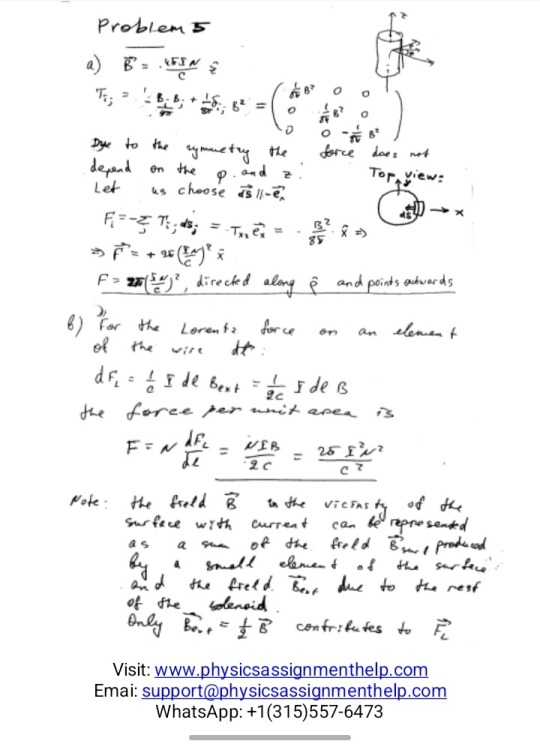 Problem 5
a) B⃗ = 4πIN/C ẑ
z
T_ij = - 1/4π B_i B_j + 1/8π δ_ij B² = ( 1/8π B² 0 0
0 1/8π B² 0
0 0 -1/8π B² )
Due to the symmetry the force does not
depend on the φ and z.
Top view:
Let us choose ds⃗ ∥ -e⃗x
ds⃗
x
F_i = - Σ_j T_ij ds_j = - T_xx e⃗x = - B²/8π x̂ ⇒
⇒ F⃗ = + 2π (IN/C)² x̂
F = 2π (IN/C)², directed along ρ̂ and points outwards
b) For the Lorentz force on an element
of the wire dl:
dF_L = 1/c I dl B_ext = 1/2c I dl B
the force per unit area is
F = N dF_L/dl = NIB/2C = 2π I²N²/C²
Note: the field B⃗ in the vicinity of the
surface with current can be represented
as a sum of the field B⃗surf produced
by a small element of the surface
and the field B⃗ext due to the rest
of the solenoid.
Only B⃗ext = 1/2 B⃗ contributes to F⃗_L
Visit: www.physicsassignmenthelp.com
Emai: support@physicsassignmenthelp.com
WhatsApp: +1(315)557-6473